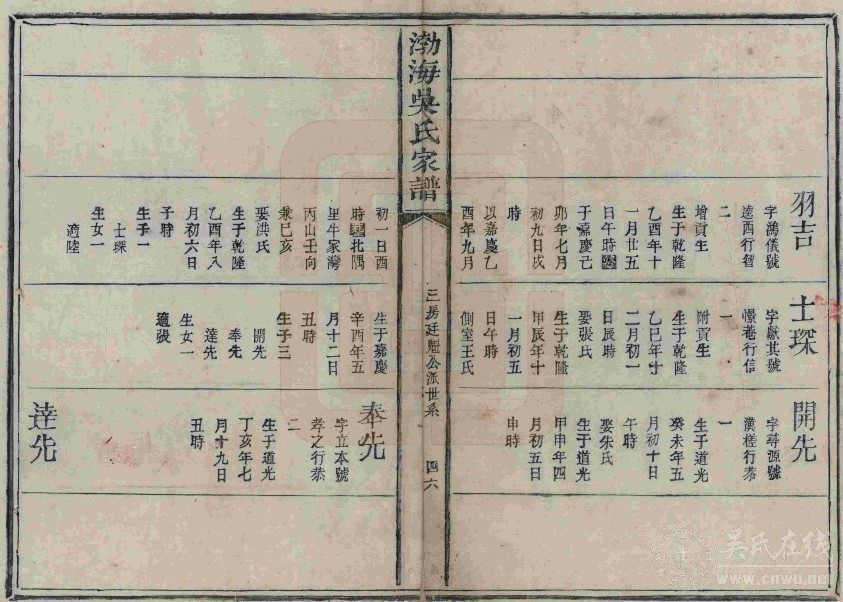 渤海吳氏家譜
三房廷魁公派世系
四六
羽吉
字鴻儀號
逵西行智
二
增貢生
生于乾隆
乙酉年十
一月廿五
日午時
于嘉慶己
卯年七月
初九日戌
時
以嘉慶乙
酉年九月
初一日酉
時
北隅
里牛家灣
丙山壬向
兼巳亥
娶洪氏
生于乾隆
乙酉年八
月初六日
子時
生子一
士琛
生女一
適陸
士琛
字獻其號
憬菴行信
一
附貢生
生于乾隆
乙巳年十
二月初一
日辰時
娶張氏
生于乾隆
甲辰年十
一月初五
日午時
側室王氏
生于嘉慶
辛酉年五
月十二日
丑時
生子三
開先
奉先
達先
生女一
適張
開先
字尋源號
漢槎行恭
一
生于道光
癸未年五
月初十日
午時
娶朱氏
生于道光
甲申年四
月初五日
申時
奉先
字立本號
孝之行恭
二
生于道光
丁亥年七
月十九日
丑時
達先
吳氏在线
www.cnwu.net